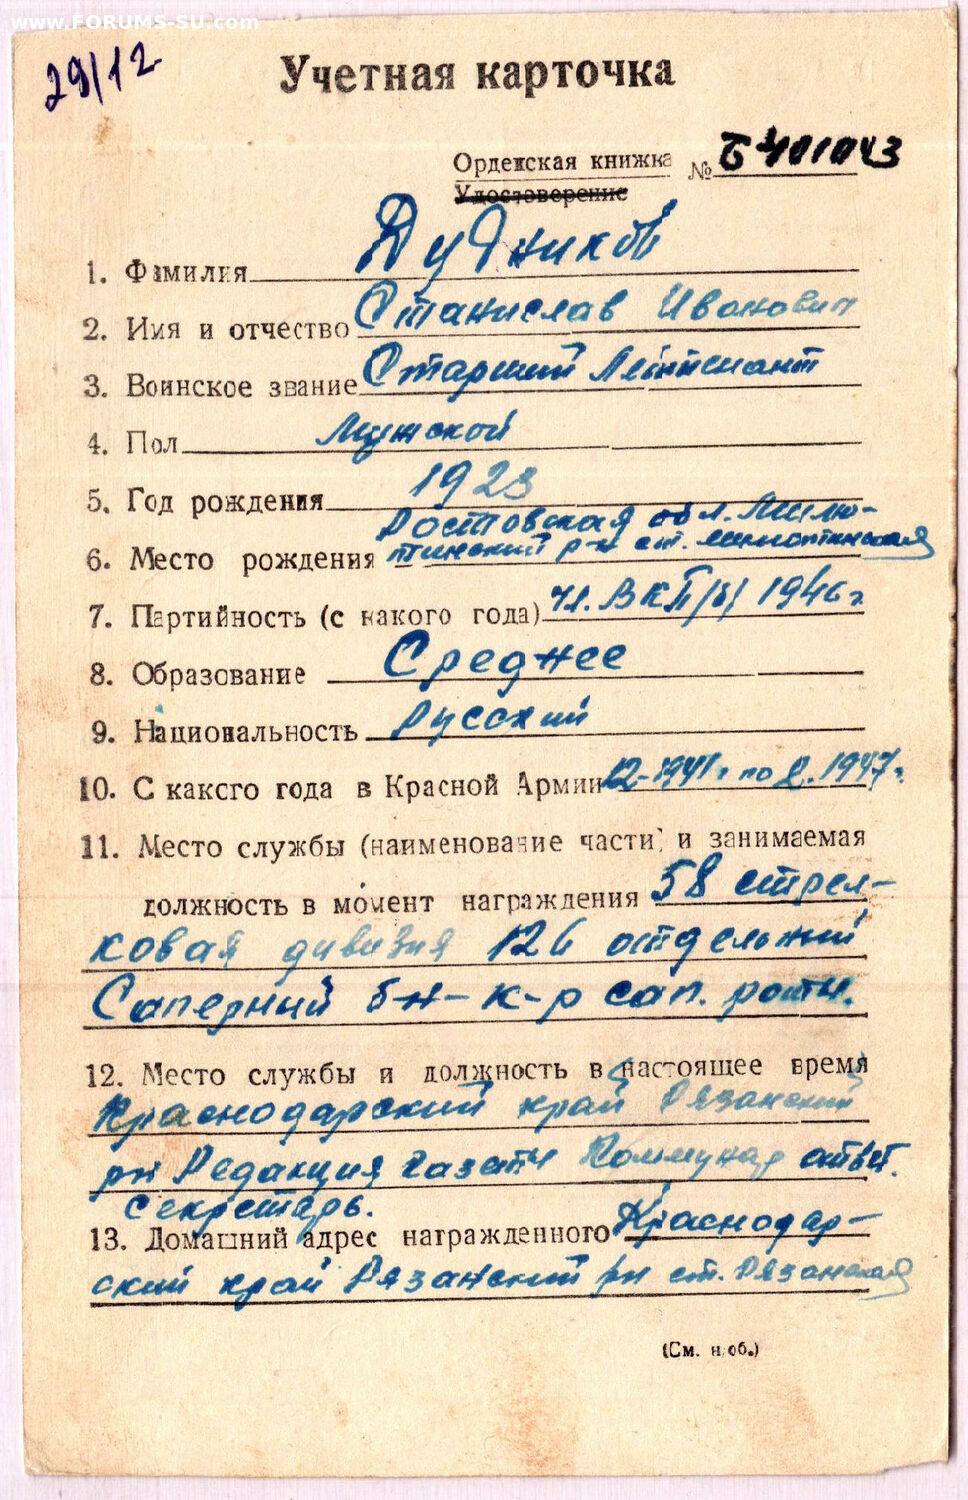 www.FORUMS-SU.com
29/12
Учетная карточка
Орденская книжка № Б 401043
Удостоверение
1. Фамилия Дудников
2. Имя и отчество Станислав Иванович
3. Воинское звание Старший Лейтенант
4. Пол Мужской
5. Год рождения 1923
6. Место рождения Ростовская обл. Милю-
тинский р-н ст. Милютинская
7. Партийность (с какого года) чл. ВКП/б/ 1946 г.
8. Образование Среднее
9. Национальность Русский
10. С какого года в Красной Армии 12-1941 г. по 2. 1947 г.
11. Место службы (наименование части) и занимаемая
должность в момент награждения 58 стрел-
ковая дивизия 126 отдельный
Саперный б-н - к-р сап. роты.
12. Место службы и должность в настоящее время
Краснодарский край Рязанский
рн Редакция газеты Коммунар ответ.
секретарь.
13. Домашний адрес награжденного Краснодар-
ский край Рязанский рн ст. Рязанская
(См. н/об.)